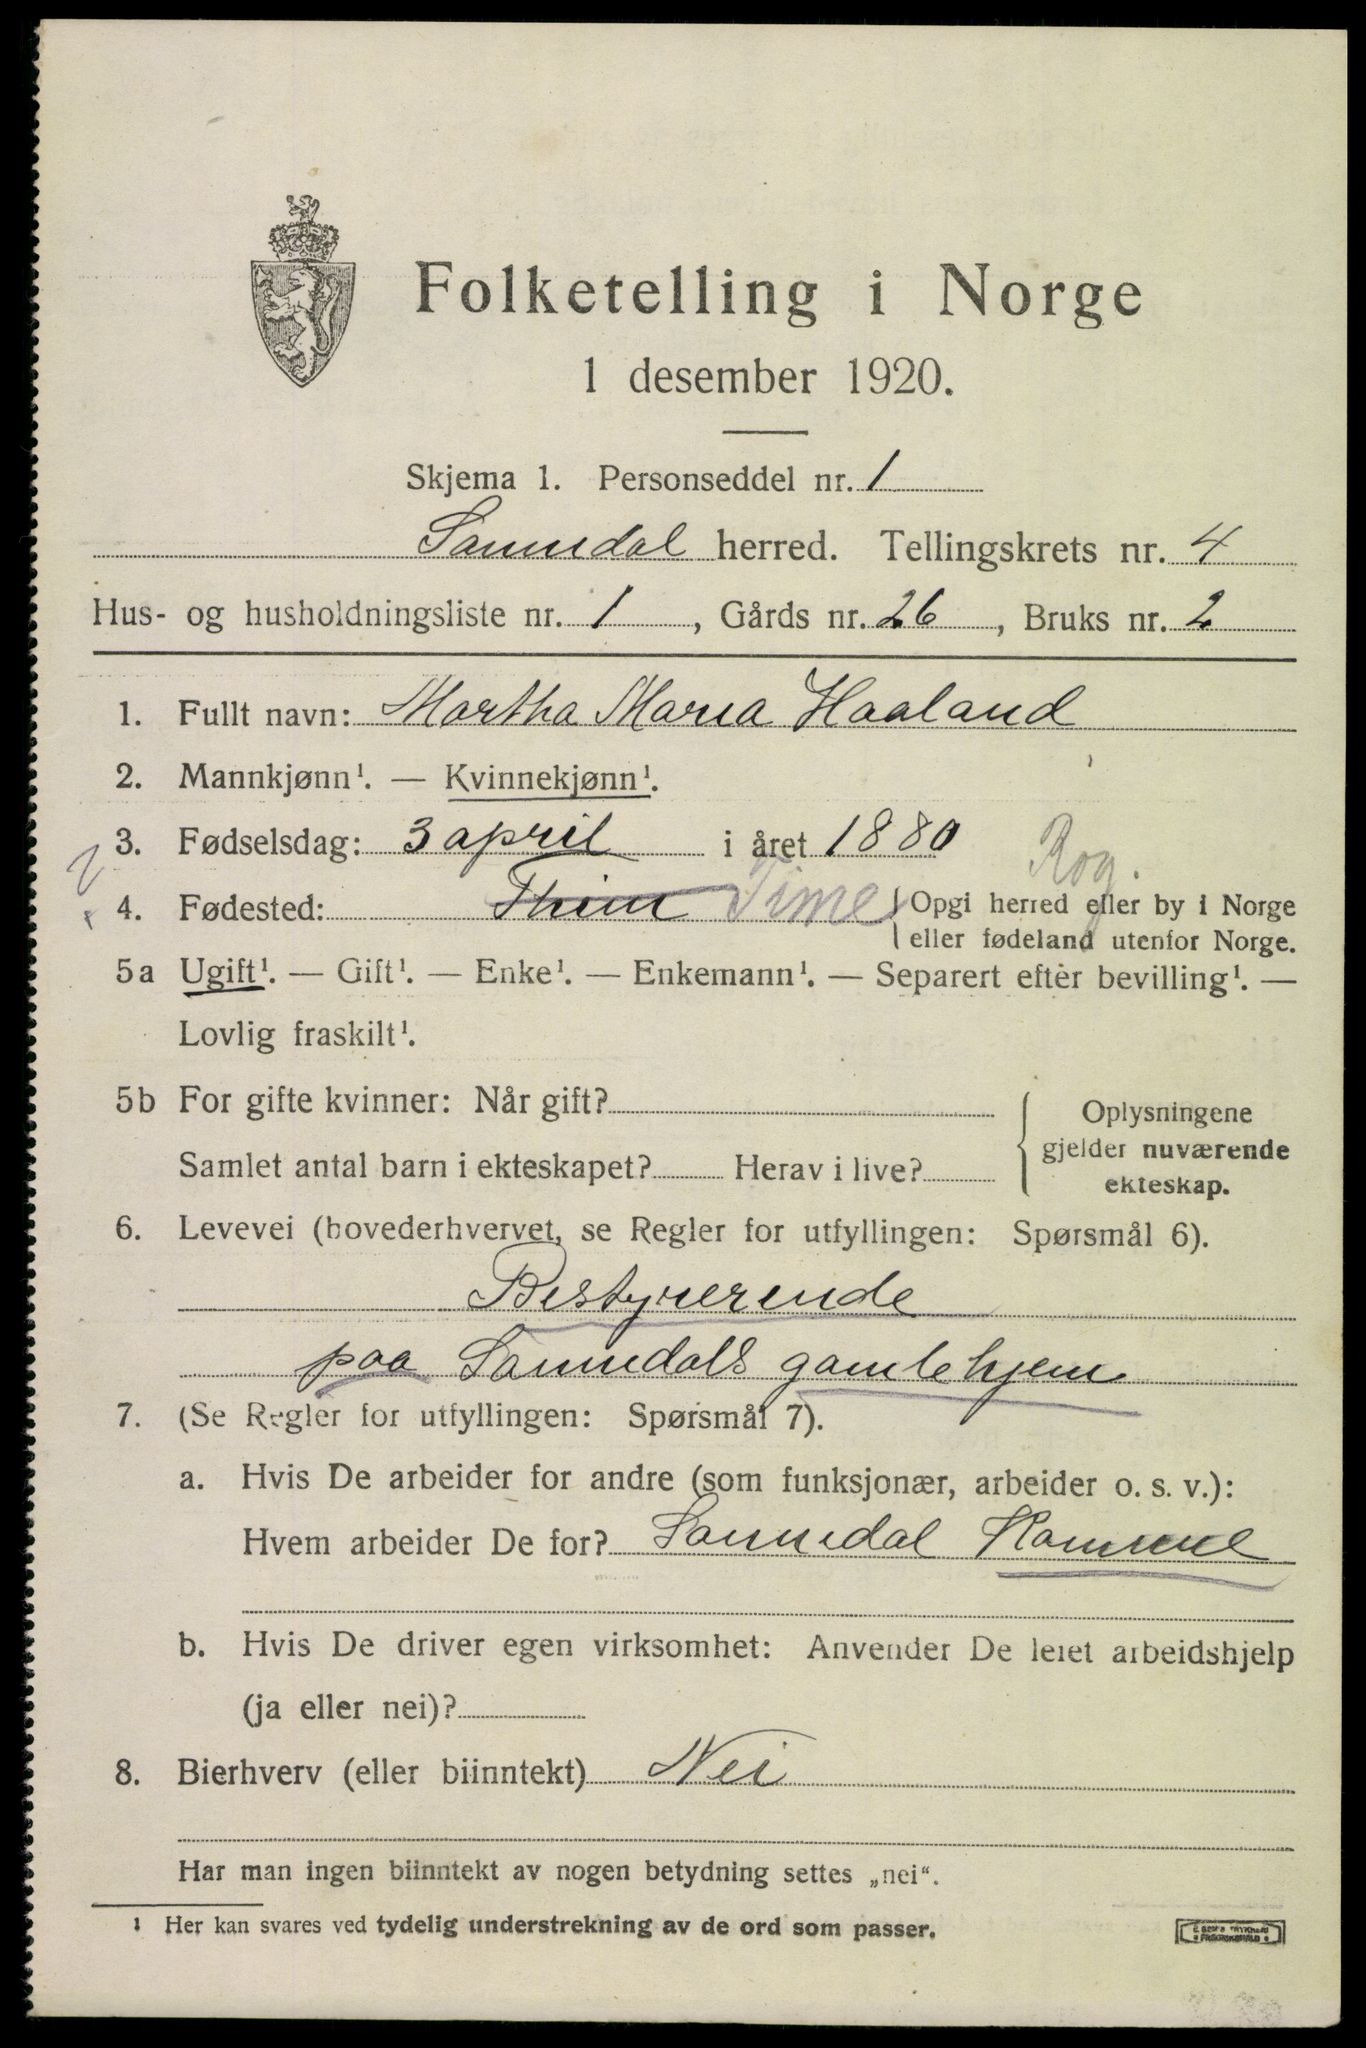 Folketelling i Norge
1 desember 1920.
Skjema 1. Personseddel nr. 1
Sanndal herred. Tellingskrets nr. 4
Hus- og husholdningsliste nr. 1, Gårds nr. 26, Bruks nr. 2
1. Fullt navn: Martha Maria Haaland
2. Mannkjønn¹. — Kvinnekjønn¹.
3. Fødselsdag: 3 april i året 1880
Rog.
4. Fødested: Thim Time { Opgi herred eller by i Norge
eller fødeland utenfor Norge.
5a Ugift¹. — Gift¹. — Enke¹. — Enkemann¹. — Separert efter bevilling¹. —
Lovlig fraskilt¹.
5b For gifte kvinner: Når gift?
Samlet antal barn i ekteskapet? Herav i live?
{ Oplysningene
gjelder nuværende
ekteskap.
6. Levevei (hovederhvervet, se Regler for utfyllingen: Spørsmål 6).
Bestyrerende
paa Sanndals gamlehjem
7. (Se Regler for utfyllingen: Spørsmål 7).
a. Hvis De arbeider for andre (som funksjonær, arbeider o. s. v.):
Hvem arbeider De for? Sanndal Kommune
b. Hvis De driver egen virksomhet: Anvender De leiet arbeidshjelp
(ja eller nei)?
8. Bierhverv (eller biinntekt) Nei
Har man ingen biinntekt av nogen betydning settes „nei“.
¹ Her kan svares ved tydelig understrekning av de ord som passer.